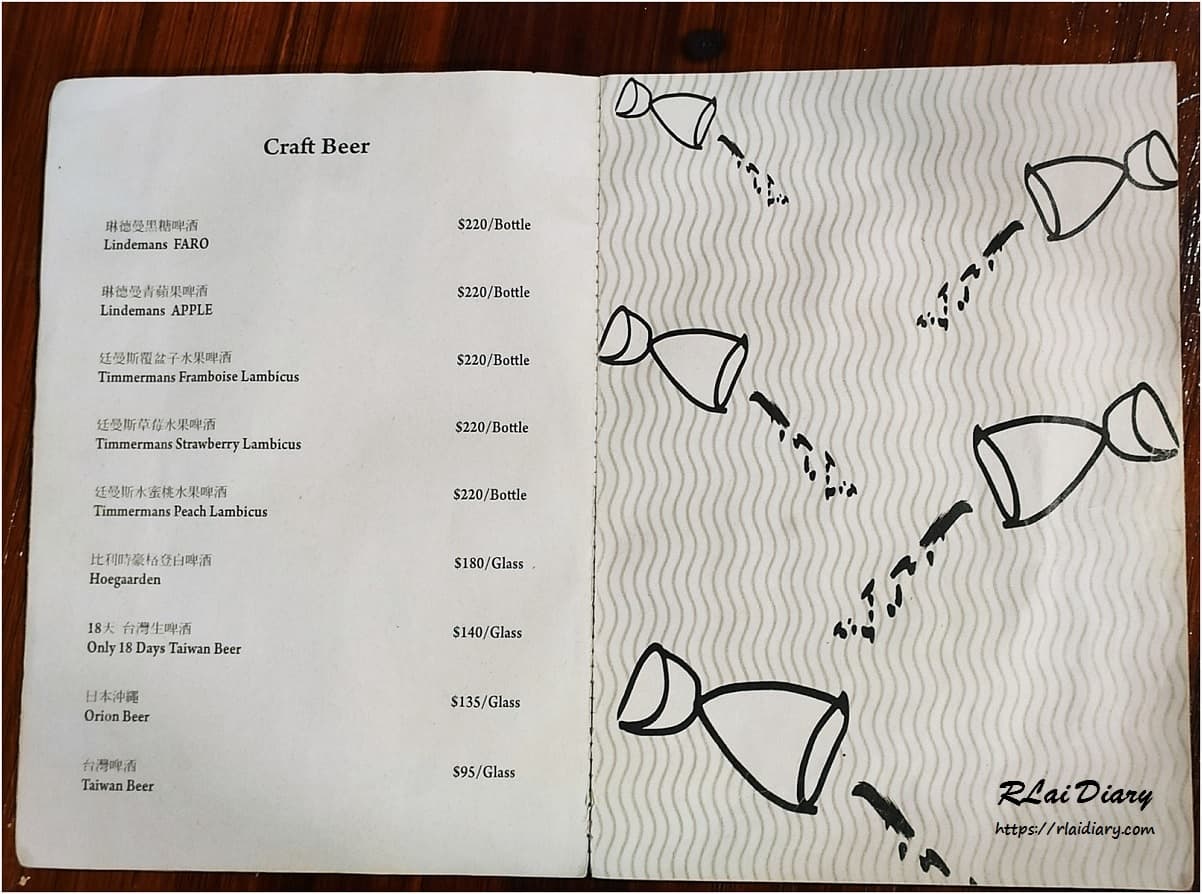 Craft Beer
琳德曼黑糖啤酒
Lindemans FARO
$220/Bottle
琳德曼青蘋果啤酒
Lindemans APPLE
$220/Bottle
廷曼斯覆盆子水果啤酒
Timmermans Framboise Lambicus
$220/Bottle
廷曼斯草莓水果啤酒
Timmermans Strawberry Lambicus
$220/Bottle
廷曼斯水蜜桃水果啤酒
Timmermans Peach Lambicus
$220/Bottle
比利時豪格登白啤酒
Hoegaarden
$180/Glass
18天 台灣生啤酒
Only 18 Days Taiwan Beer
$140/Glass
日本沖繩
Orion Beer
$135/Glass
台灣啤酒
Taiwan Beer
$95/Glass
RLai Diary
https://rlaidiary.com